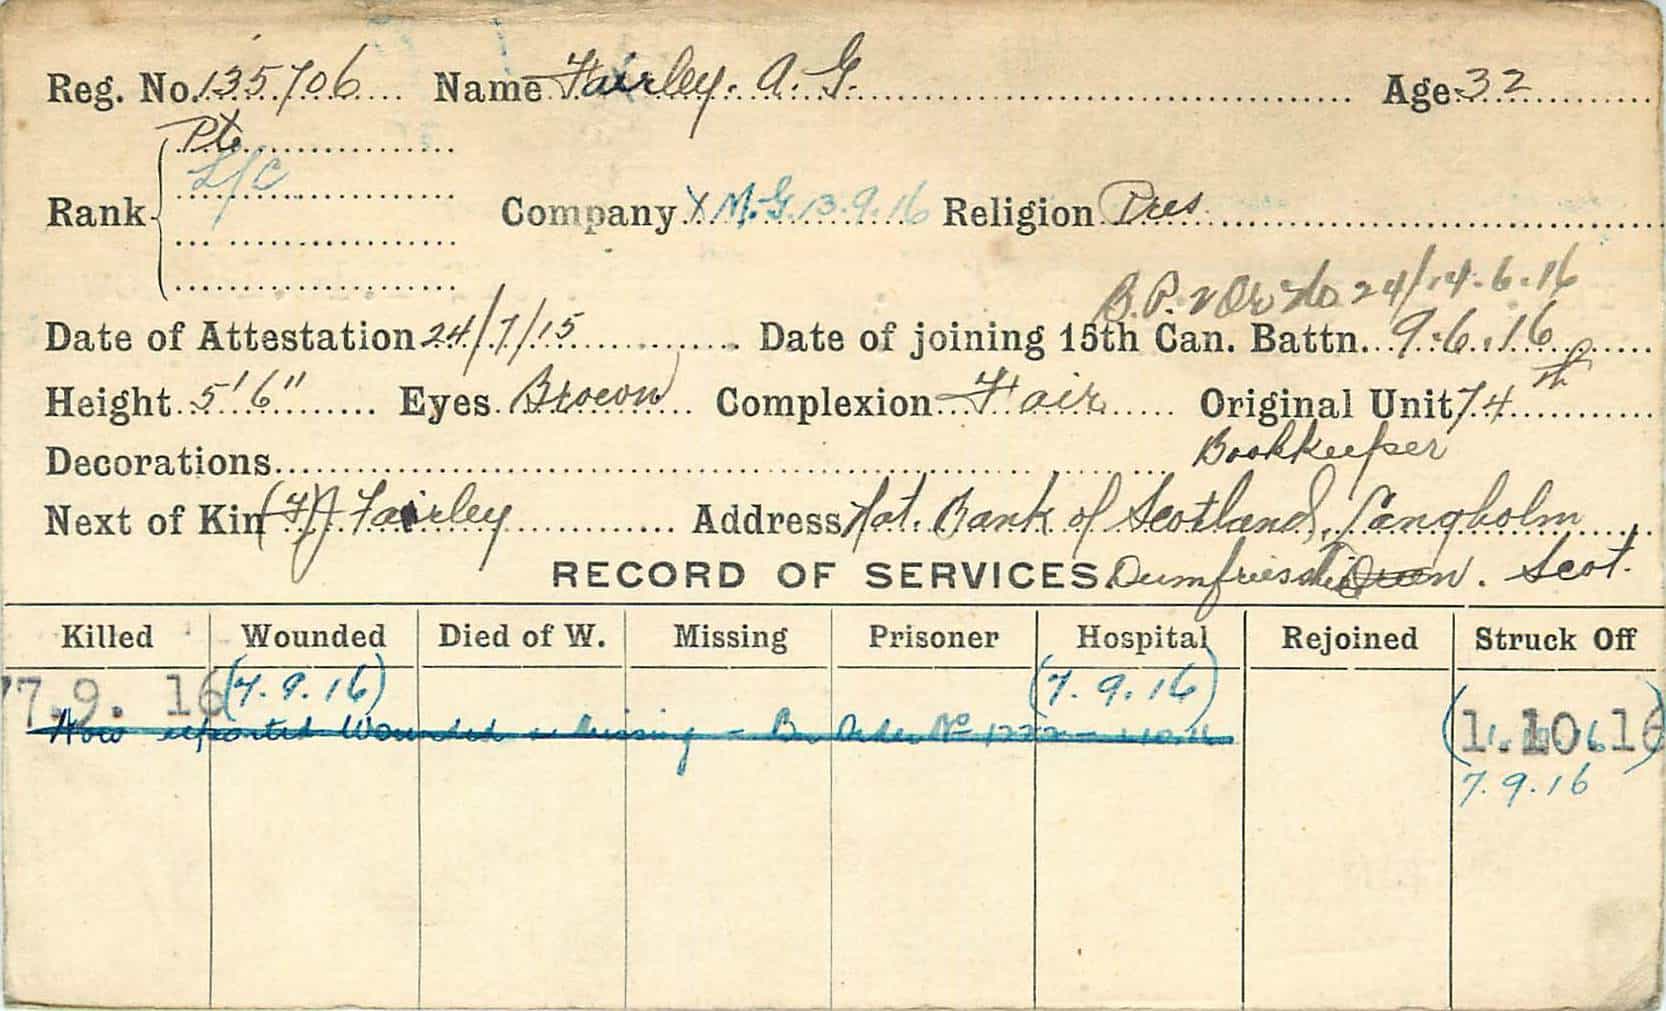 Reg. No. 135706 Name Fairley. A. G. Age 32
Pte
L/C
Rank Company X M.G. 13.9.16 Religion Pres
B.P. 2 Or No 24/14.6.16
Date of Attestation 24/7/15 Date of joining 15th Can. Battn. 9.6.16
Height 5'6" Eyes Brown Complexion Fair Original Unit 74th
Bookkeeper
Decorations
Next of Kin (F) J. Fairley Address Nat. Bank of Scotland, Langholm
RECORD OF SERVICES Dumfries Scot.
Killed Wounded Died of W. Missing Prisoner Hospital Rejoined Struck Off
7.9.16 (7.9.16) (7.9.16) (1.10.16)
Now reported Wounded & Missing - Bn Order No
7.9.16